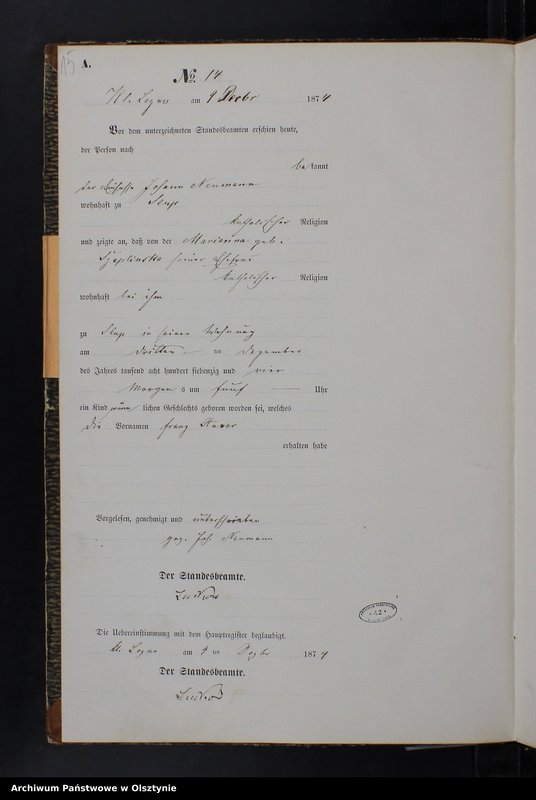 15 A.
No. 14
Kl. Lezno am 9 Decbr 1874
Vor dem unterzeichneten Standesbeamten erschien heute,
der Person nach
be kannt
der Johann Neumann
wohnhaft zu Slup
katholischer Religion
und zeigte an, daß von der Marianna geb.
seiner Ehefrau
katholischer Religion
wohnhaft bei ihm
zu Slup in seiner Wohnung
am dritten ten Dezember
des Jahres tausend acht hundert siebenzig und vier
Morgen s um fünf Uhr
ein Kind männ lichen Geschlechts geboren worden sei, welches
die Vornamen Franz
erhalten habe
Vorgelesen, genehmigt und unterschrieben
gez. Joh. Neumann
Der Standesbeamte.
Die Uebereinstimmung mit dem Hauptregister beglaubigt.
Kl. Lezno am 9 ten Dezbr 1874
Der Standesbeamte.
Archiwum Państwowe w Olsztynie